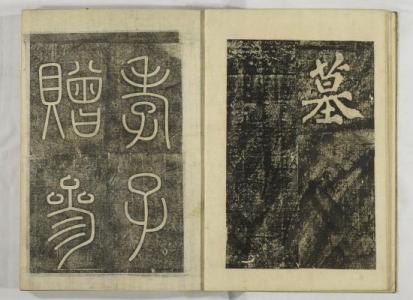 墓
孝子
贈參